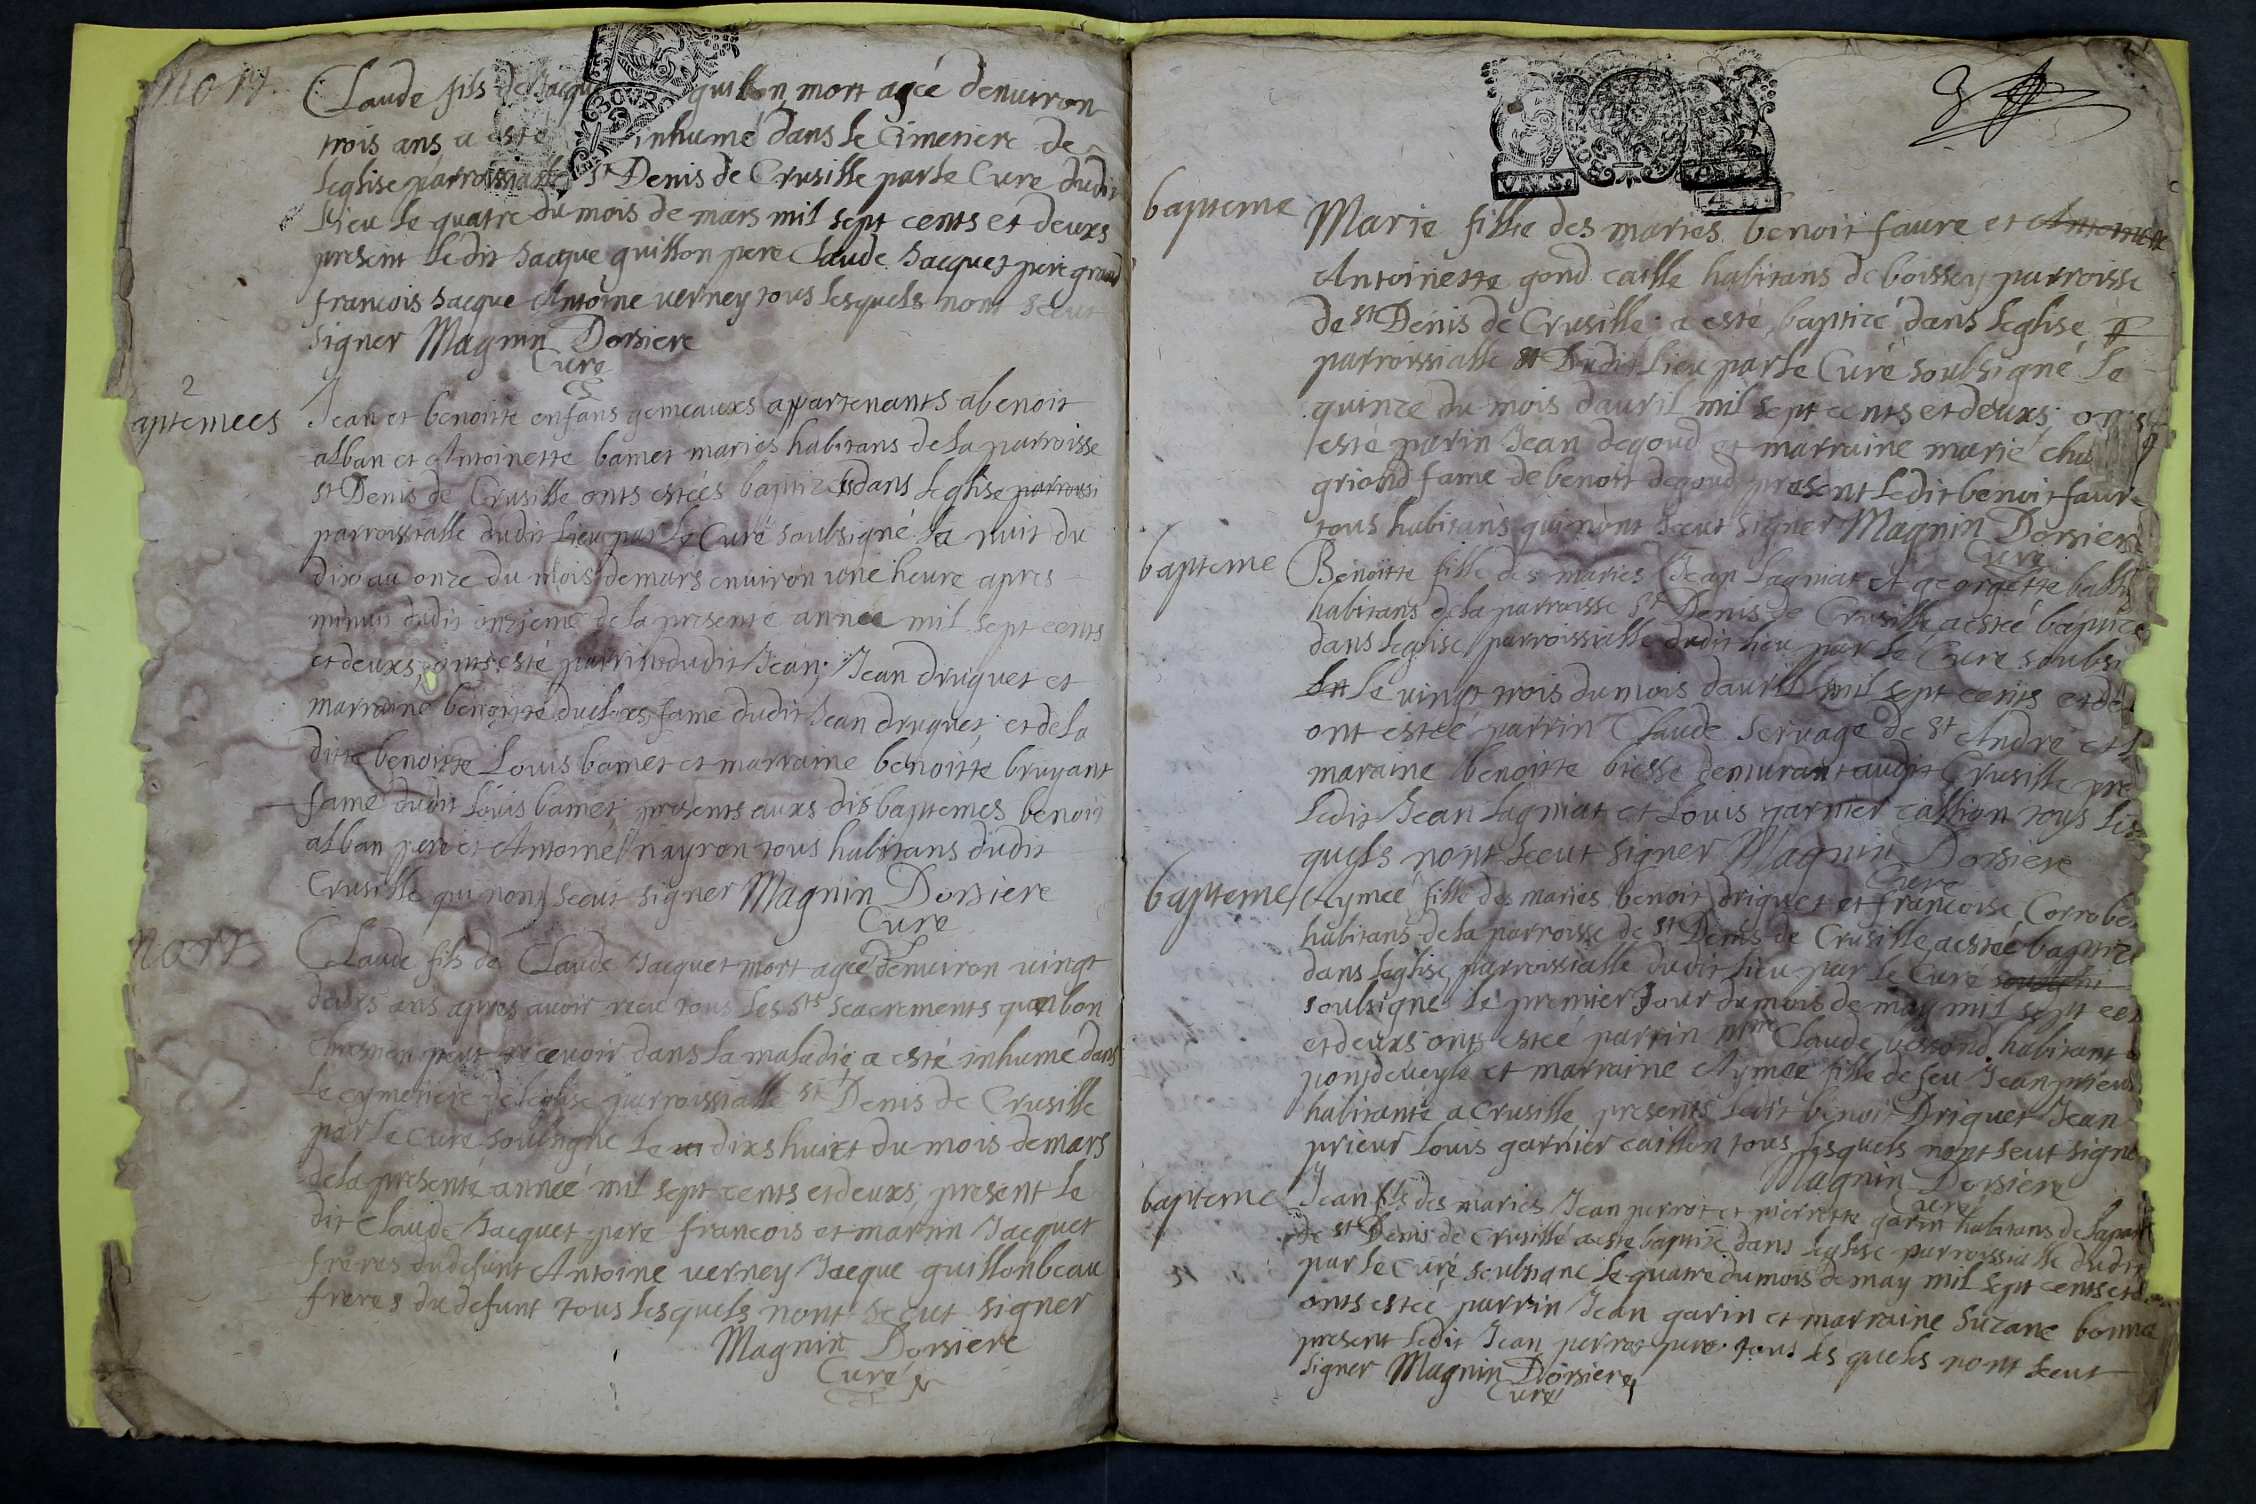 mort
Claude fils de Jacque guillon mort agée denuiron
trois ans a esté inhumé dans le Cimetiere de
leglise parroissialle St Denis de Crusille par le Cure dudit
Lieu le quatre du mois de mars mil sept cents et deuxs
present ledit Jacque guillon pere Claude Jacquet pere grand
francois Jacque Antoine verney tous lesquels nont sceut
signer Magnin Dorsiere
Cure
2
aptemees
Jean et benoitte enfans gemeauxs appartenants a benoit
alban et Antoinette bamet maries habitans de la parroisse
St Denis de Crusille onts estées baptizes dans leglise parroissi
parroissialle dudit Lieu par le Curé soubsigné la nuit du
dix au onze du mois de mars enuiron une heure apres
minuit dudit onzieme de la presente année mil sept cents
et deuxs, onts esté parrin dudit Jean, Jean druguet et
marraine benoitte ducloxs fame dudit Jean druguet, et de la
ditte benoitte Louis bamet et marraine benoitte bruyant
fame dudit Louis bamet, presents auxs dis baptemes benoit
alban pere et Antoine nayron tous habitans dudit
Crusille qui nont sceut signer Magnin Dorsiere
Cure
mort
Claude fils de Claude Jacquet mort agée denuiron vingt
deuxs ans apres auoir recu tous les Sts Seacrements quen bon
chrestien peut receuoir dans la maladie a esté inhumé dans
le cymetiere de leglise parroissialle St Denis de Crusille
par le curé soubsigné le dixs huixt du mois de mars
de la presente année mil sept cents et deuxs, present le
dit Claude Jacquet pere francois et martin Jacquet
freres du defunt Antoine verney Jacque guillon beau
freres du defunt tous lesquels nont sceut signer
Magnin Dorsiere
Curé
VN S.
4 D.
bapteme
Marie fillie des maries benoit faure et Antoinette
Antoinette gond caille habitans de boissey parroisse
de St Denis de Crusille a esté baptizé dans leglise
parroissialle St Dudit Lieu par le Curé soubsigné le
quinze du mois dauril mil sept cents et deuxs on
esté parin Jean degoud et marraine marie cha
griond fame de benoit degoud present ledit benoit faure
tous habitans qui nont sceut signer Magnin Dorsiere
Cure
bapteme
Benoitte fille des maries Jean Lagniat et georgette balli
habitans de la parroisse St Denis de Crusille a estée baptize
dans leglise parroissialle dudit lieu par le Cure soubsi
le vingt trois du mois dauril mil sept cents et de
ont estée parrin Claude Seruage de St Andre et
maraine benoitte biesse demurant audit Crusille pre
ledit Jean Lagniat et Louis garnier callion tous les
quels nont sceut signer Magnin Dorsiere
Cure
bapteme
Aymée fille des maries benoit driguet et francoise Corrobe
habitans de la parroisse de St Denis de Crusille a estée baptize
dans leglise parroissialle dudit lieu par le Curé
soubsigne le premier Jour du mois de may mil sept cen
et deuxs onts estée parrin Claude vessond habitant
pont de ueyle et marraine Aymée fille de feu Jean prieur
habitante a Crusille presents ledit benoit Driguet Jean
prieur Louis garnier caillon tous lesquels nont sceut signe
Magnin Dorsiere
Curé
bapteme
Jean fils des maries Jean perrot et pierrette garin habitans de la parr
de St Denis de Crusille a esté baptizé dans leglise parroissialle dudit
par le Curé soubsigne le quatre du mois de may mil sept cents et
onts estée parrin Jean garin et marraine Suzane bonna
present ledit Jean perrot pere tous les quels nont sceut
signer Magnin Dorsiere
Curé